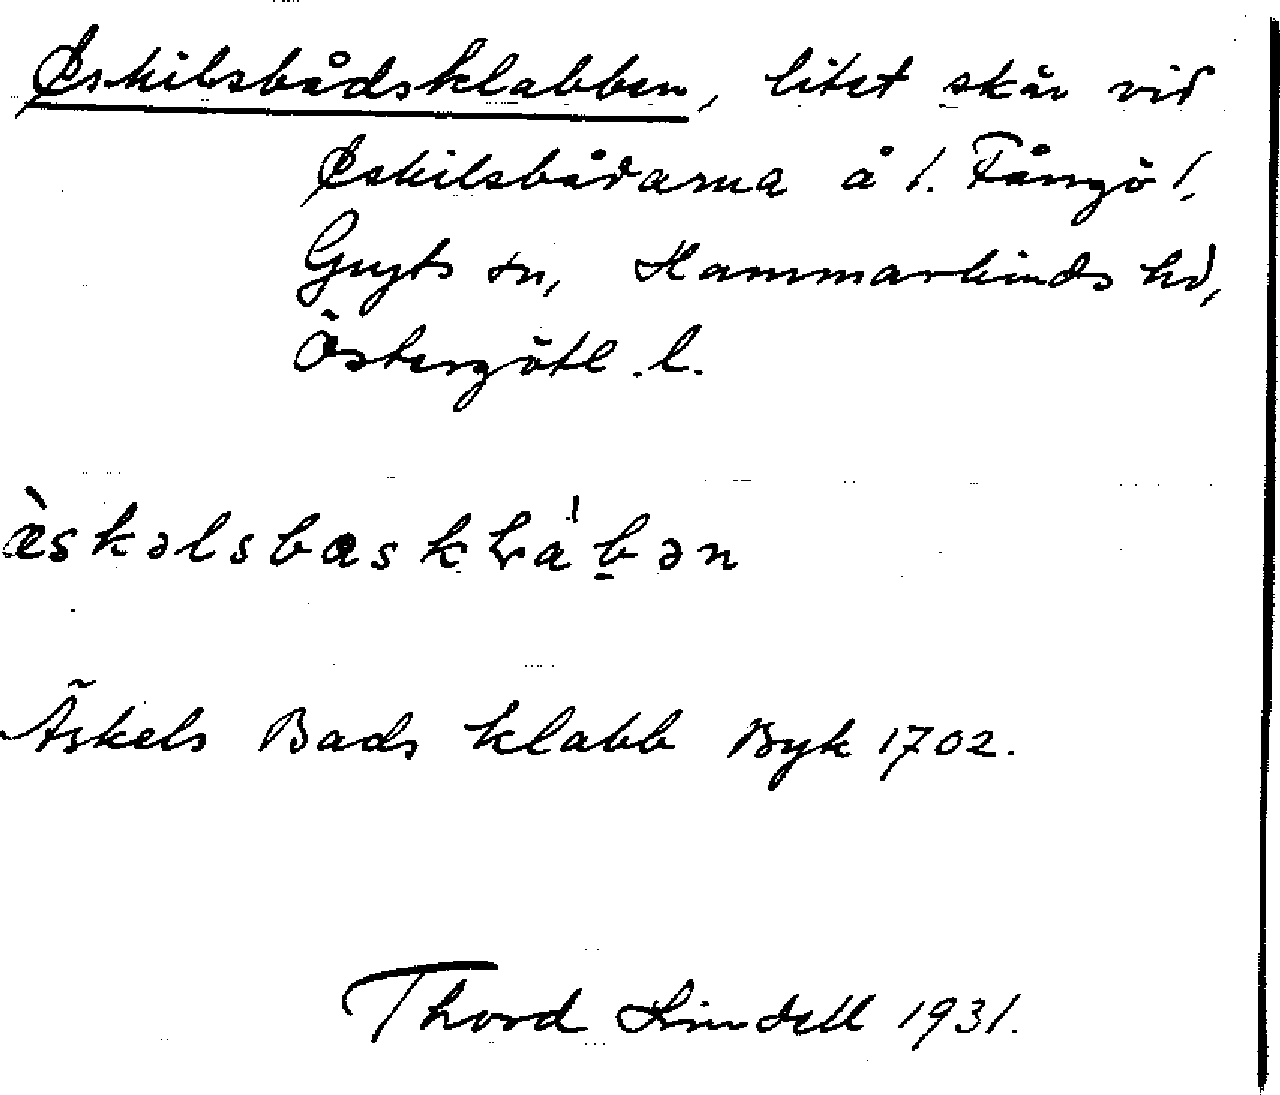 Eskilsbådsklabben, litet skär vid
Eskilsbådarna å /. Fångö /,
Gryts sn, Hammarkinds hd,
Östergötl. l.
æ̀skəlsbaskLa'bən
Äskels Bads klabb Byk 1702.
Thord Lindell 1931.